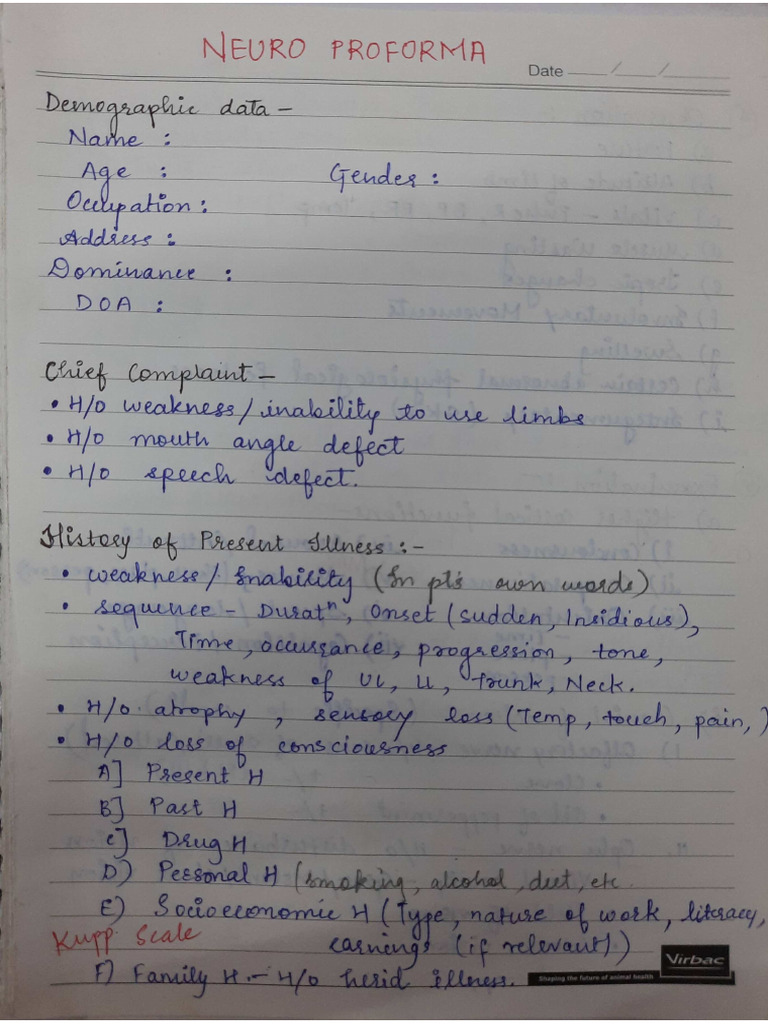 NEURO PROFORMA
Date __/__/__
Demographic data –
Name :
Age : Gender :
Occupation :
Address :
Dominance :
DOA :
Chief Complaint –
• H/O weakness/inability to use limbs
• H/O mouth angle defect
• H/O speech defect.
History of Present Illness :-
• weakness/Inability (In pt's own words)
• sequence – Duratⁿ, Onset (Sudden, Insidious),
Time, occurrance, progression, tone,
weakness of UL, LL, Trunk, Neck.
• H/O atrophy, sensory loss (Temp, touch, pain,)
• H/O loss of consciousness
A] Present H
B] Past H
C] Drug H
D) Personal H (smoking, alcohol, diet, etc
E) Socioeconomic H (Type, nature of work, literacy,
Kupp. Scale earnings (if relevant).)
F) Family H. – H/O herid illness.
Virbac
Shaping the future of animal health